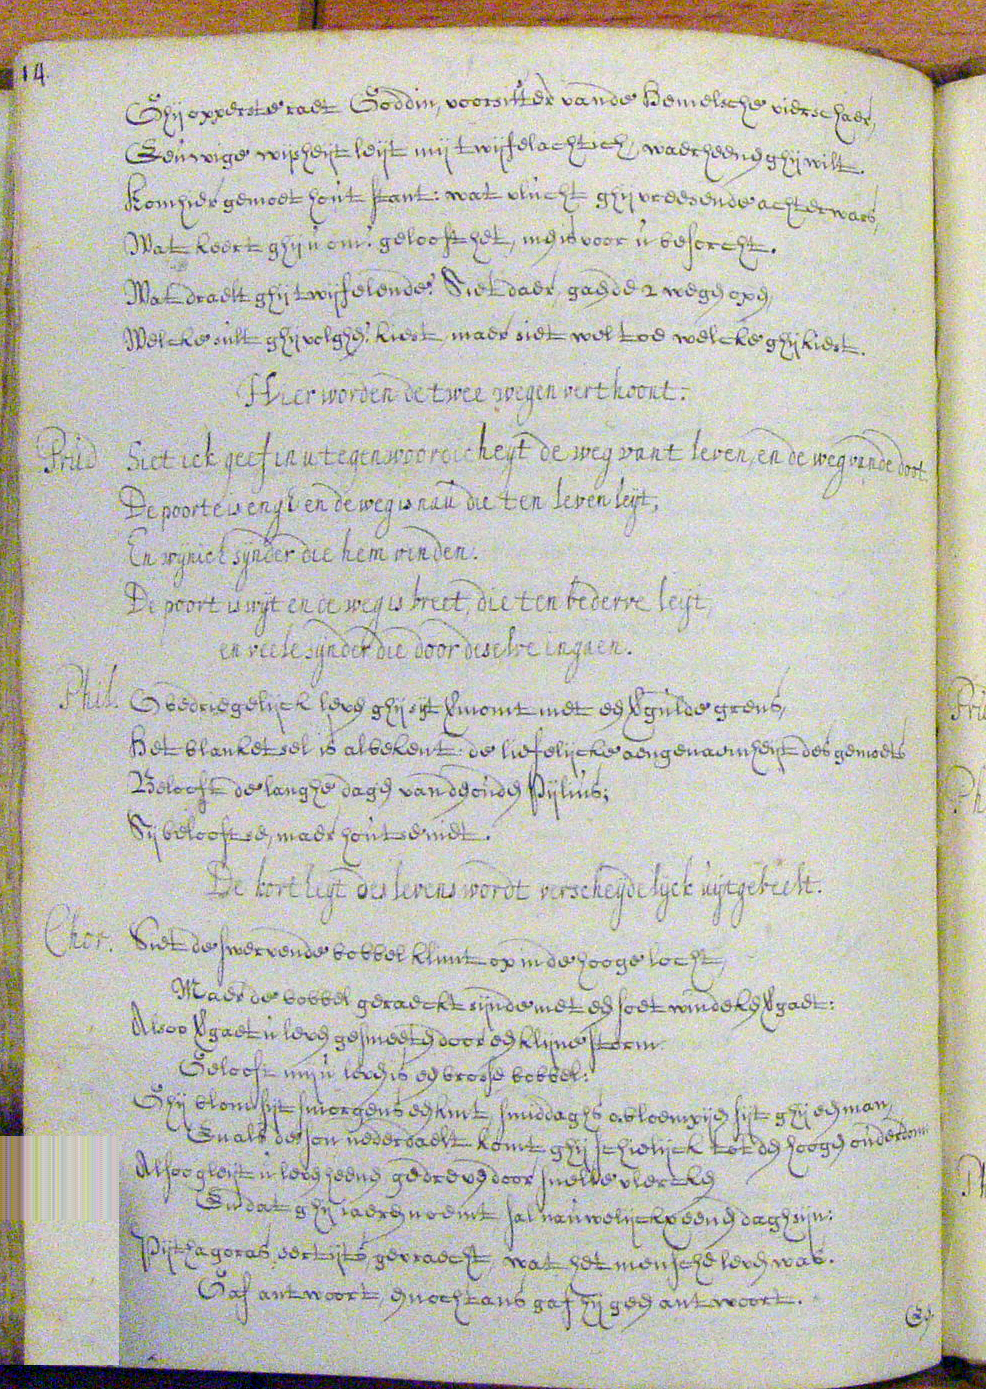 14.
Ghij opperste raet Goddin, voorsitter vande Hemelsche vierschaer,
Eeuwige wijsheijt leijt mij twijfelachtich, waerheenen ghij wilt.
Kom hier gemoet hout stant: wat vlucht ghij vreesende achterwars,
Wat keert ghij u om? gelooft het, men is voor u besorcht.
Wat draelt ghij twijfelende? Siet daer, gaende 2 wegen open,
Welcke sult ghij volghen? kiest, maer siet wel toe welcke ghij kiest.
Hier worden de twee wegen verthoont.
Prud Siet ick geef in u tegenwoordicheyt de weg vant leven, en de weg vande doot
De poorte is eng en de weg is nau die ten leven leyt,
En wynich synder die hem vinden.
De poort is wyt en de weg is breet, die ten bederve leyt,
en veele synder die door deselve ingaen.
Phil. O bedriegelijck leven ghij sijt vermomt met een vergulde grens,
Het blanketsel is al bekent: de liefelijcke aengenaemheijt des gemoets
Belooft de langhe dagen van den ouden Pijlius;
Sij belooft se, maer hout se niet.
De kortheyt des levens wordt verscheydelyck uijtgebeelt.
Chor. Siet de swervende bobbel klimt op in de hooge locht,
Maer de bobbel geraeckt sijnde met een soet windeken vergaet:
Alsoo vergaet u leven gesmeeten door een klijne storm.
Gelooft mij u leven is een broose bobbel:
Ghij blom sijt smorgens een kint, smiddaghs a bloempijen sijt ghij een man,
En als de son nederdaelt komt ghij schielijck tot den hoogen ouderdom
Alsoo gleijt u leven heenen gedreven door snelle vlercken
En dat ghij iaeren noemt sal nauwelijckx eenen dagh sijn:
Pijthagoras eertijts gevraecht, wat het menschen leven was.
Gaf antwoort, en nochtans gaf hij geen antwoort.
En